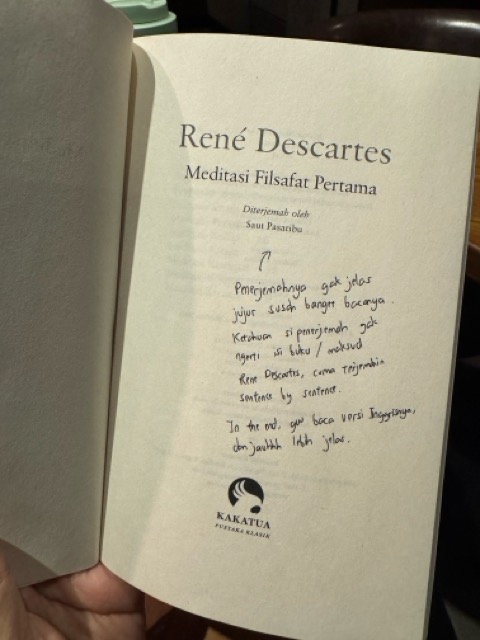 René Descartes
Meditasi Filsafat Pertama
Diterjemah oleh
Saut Pasaribu
Penerjemahnya gak jelas
jujur susah banget bacanya.
Ketahuan si penerjemah gak
ngerti isi buku / maksud
Rene Descartes, cuma terjemahin
sentence by sentence.
In the end, gue baca versi Inggrisnya,
dan jauhhh lebih jelas.
KAKATUA
PUSTAKA KLASIK